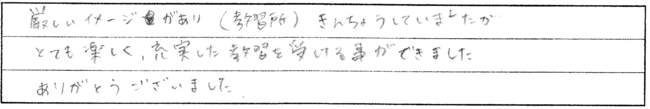 厳しいイメージがあり（教習所）きんちょうしていましたが
とても楽しく、充実した教習を受ける事ができました
ありがとうございました